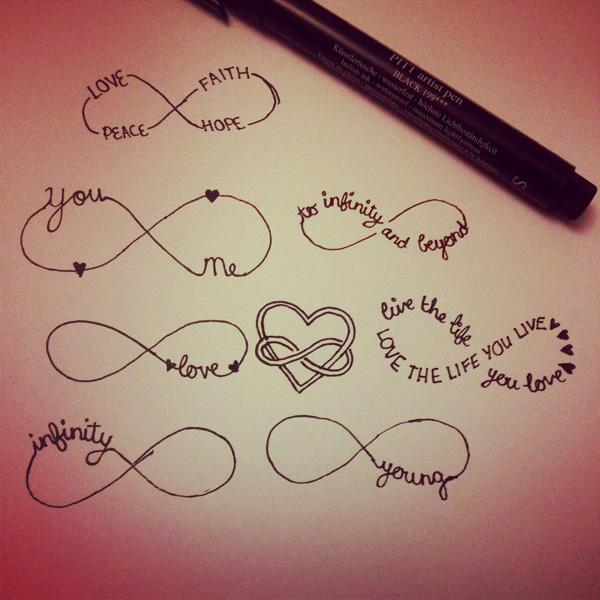 LOVE
FAITH
PEACE
HOPE
PITT artist pen
BLACK 199***
Künstlertusche - wasserfest - höchste Lichtbeständigkeit
S
you
me
to infinity
and beyond
love
live the life
LOVE THE LIFE YOU LIVE
you love
infinity
young